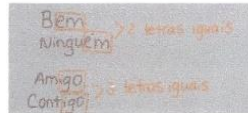 Bem
Ninguém
>2 letras iguais
Amigo
Contigo
>3 letras iguais